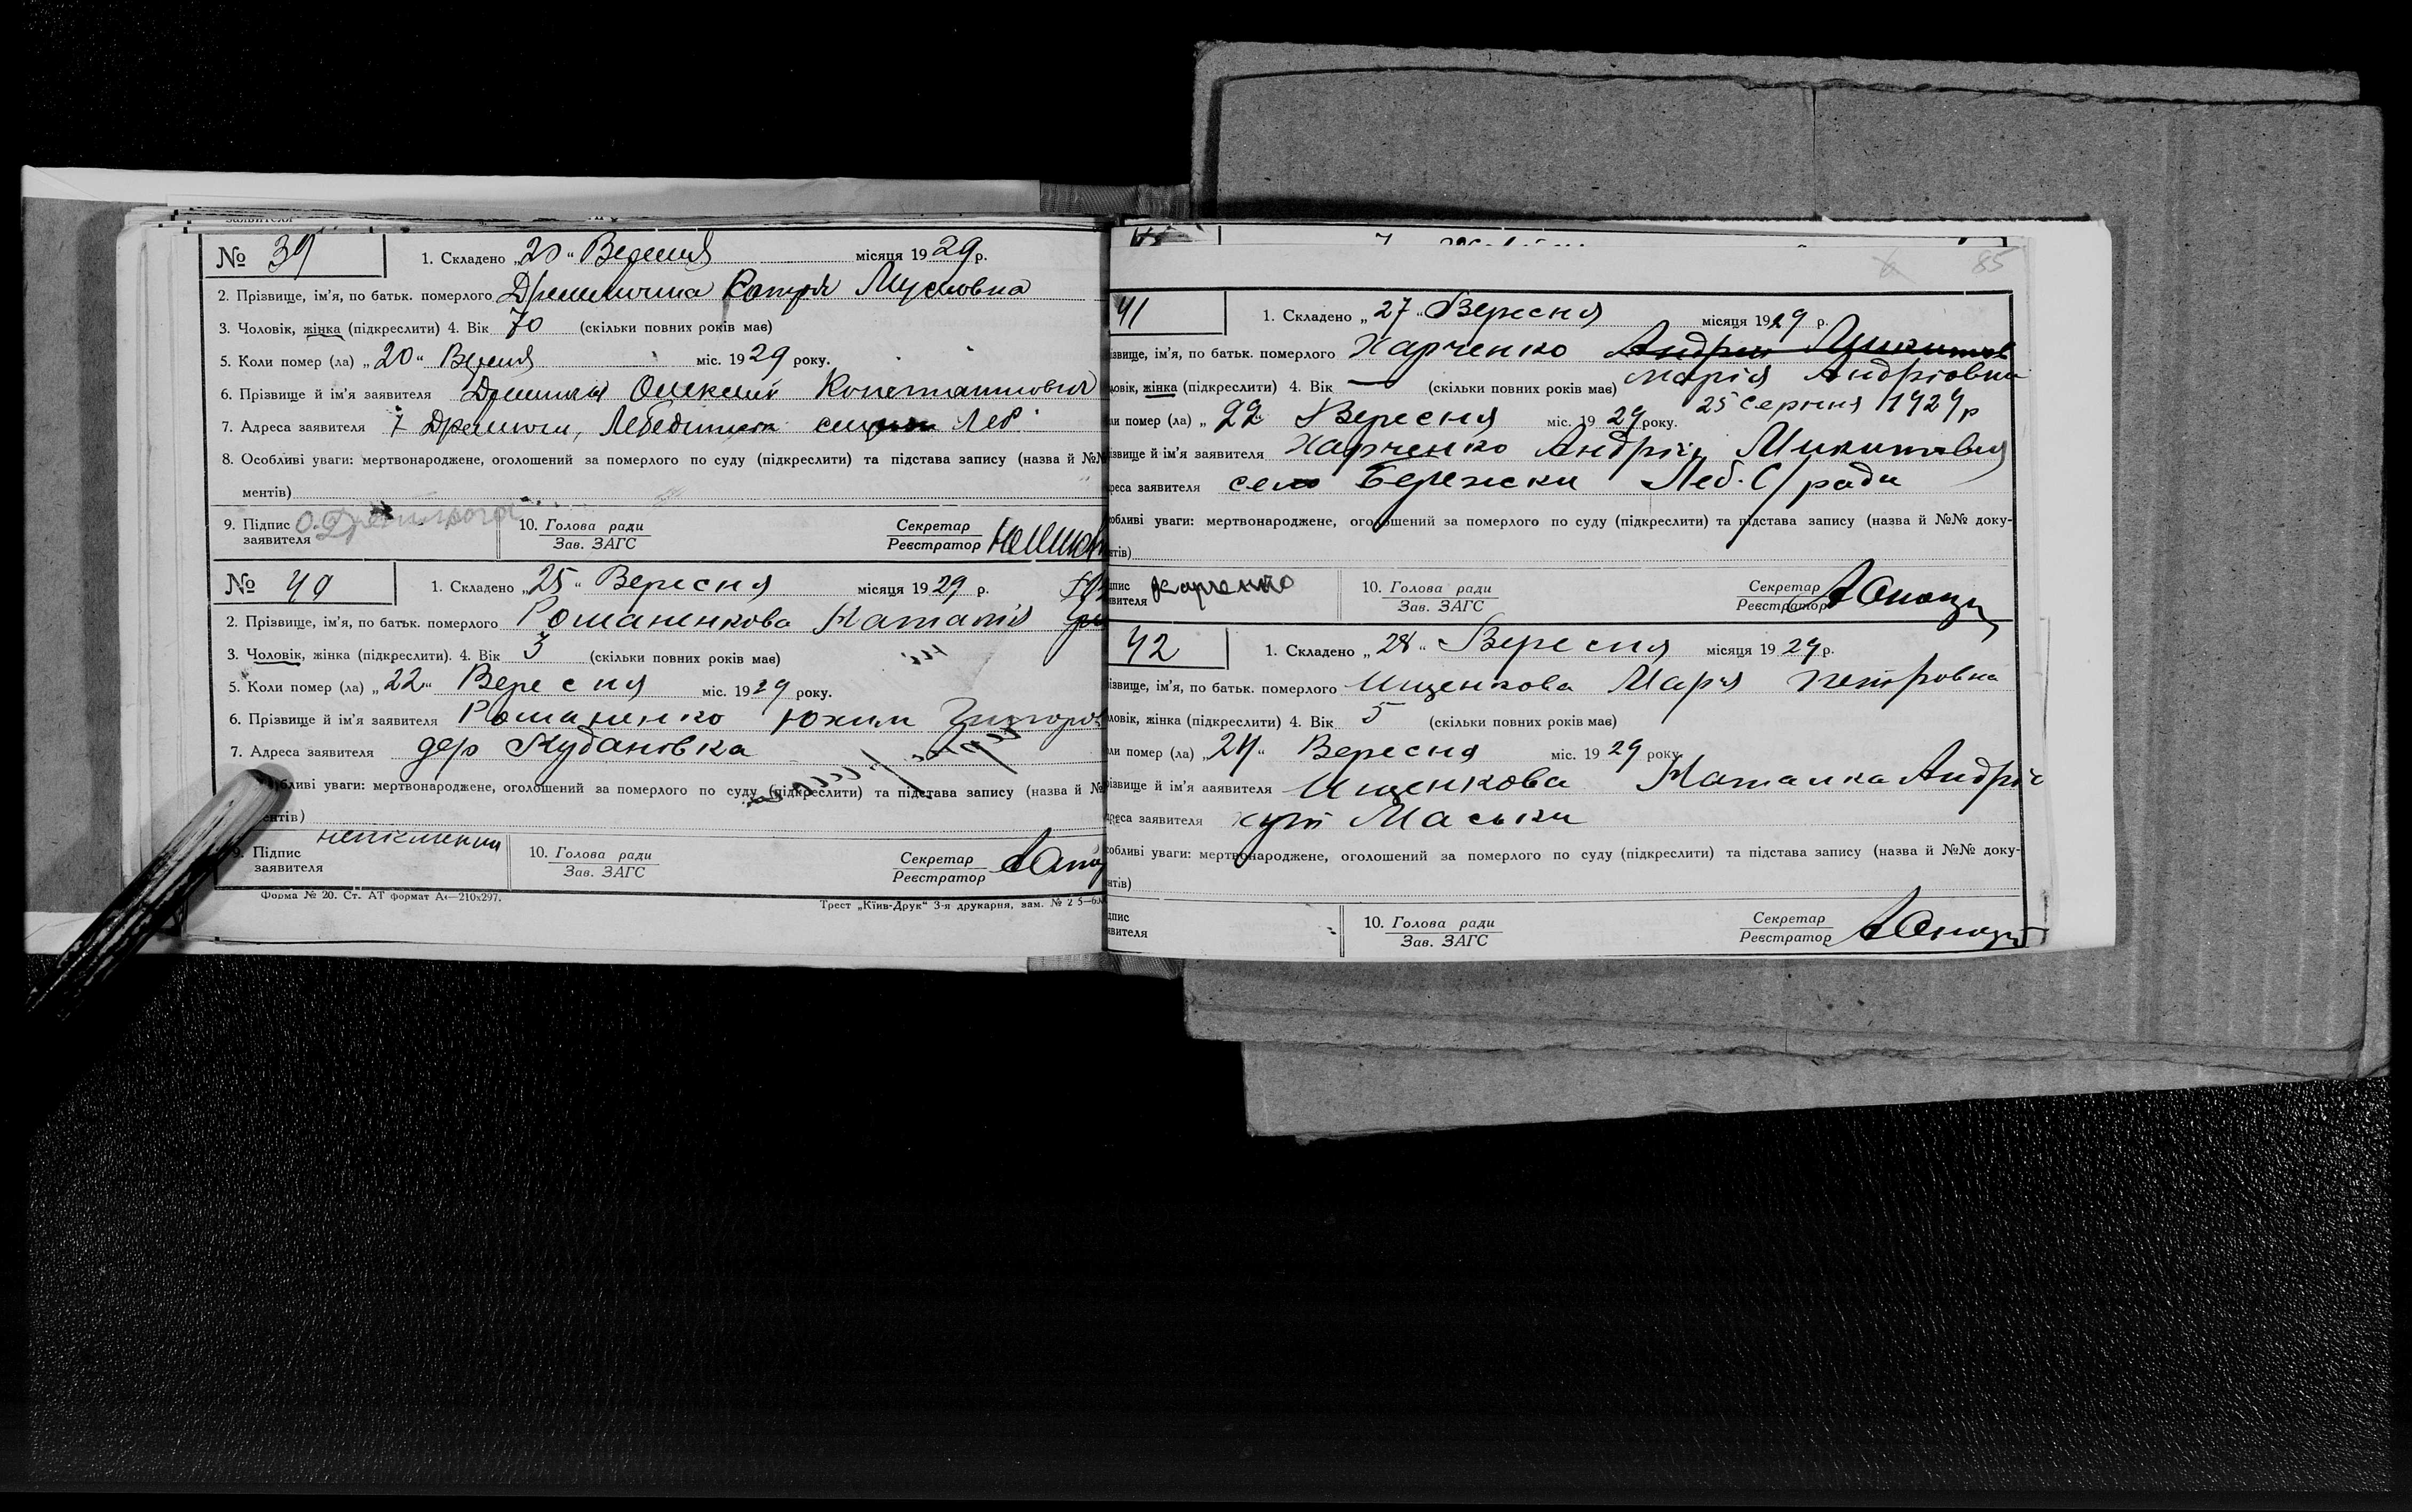 № 39 1. Складено „20“ Вересня місяця 1929 р.
2. Прізвище, ім'я, по батьк. померлого
3. Чоловік, жінка (підкреслити) 4. Вік 70 (скільки повних років має)
5. Коли помер (ла) „20“ Вересня міс. 1929 року.
6. Прізвище й ім'я заявителя Константинович
7. Адреса заявителя
8. Особливі уваги: мертвонароджене, оголошений за померлого по суду (підкреслити) та підстава запису (назва й №№
ментів)
9. Підпис заявителя 10. Голова ради Зав. ЗАГС Секретар Реєстратор
№ 40 1. Складено „25“ Вересня місяця 1929 р.
2. Прізвище, ім'я, по батьк. померлого Романенкова Наталія
3. Чоловік, жінка (підкреслити). 4. Вік 3 (скільки повних років має)
5. Коли помер (ла) „22“ Вересня міс. 1929 року.
6. Прізвище й ім'я заявителя Романенко Юхим Григоров
7. Адреса заявителя дер Кудановка
бливі уваги: мертвонароджене, оголошений за померлого по суду (підкреслити) та підстава запису (назва й №
ентів)
9. Підпис заявителя неписменни 10. Голова ради Зав. ЗАГС Секретар Реєстратор
Форма № 20. Ст. АТ формат А4—210x297. Трест „Київ-Друк“ 3-я друкарня, зам. №
85
41 1. Складено „27“ Вересня місяця 1929 р.
ізвище, ім'я, по батьк. померлого Харченко Андрій Микитов
ловік, жінка (підкреслити) 4. Вік — (скільки повних років має) Марія Андріовна
ли помер (ла) „22“ Вересня міс. 1929 року. 25 серпня 1929 р
ізвище й ім'я заявителя Харченко Андрій Микитович
реса заявителя село Бережки Леб. С/ради
обливі уваги: мертвонароджене, оголошений за померлого по суду (підкреслити) та підстава запису (назва й №№ доку-
нтів)
дпис явителя Харченко 10. Голова ради Зав. ЗАГС Секретар Реєстратор
42 1. Складено „28“ Вересня місяця 1929 р.
ізвище, ім'я, по батьк. померлого Ищенкова Мария Петровна
ловік, жінка (підкреслити) 4. Вік 5 (скільки повних років має)
ли помер (ла) „24“ Вересня міс. 1929 року.
різвище й ім'я заявителя Ищенкова Наталка Андріє
реса заявителя хут Маськи
обливі уваги: мертвонароджене, оголошений за померлого по суду (підкреслити) та підстава запису (назва й №№ доку-
нтів)
дпис явителя 10. Голова ради Зав. ЗАГС Секретар Реєстратор